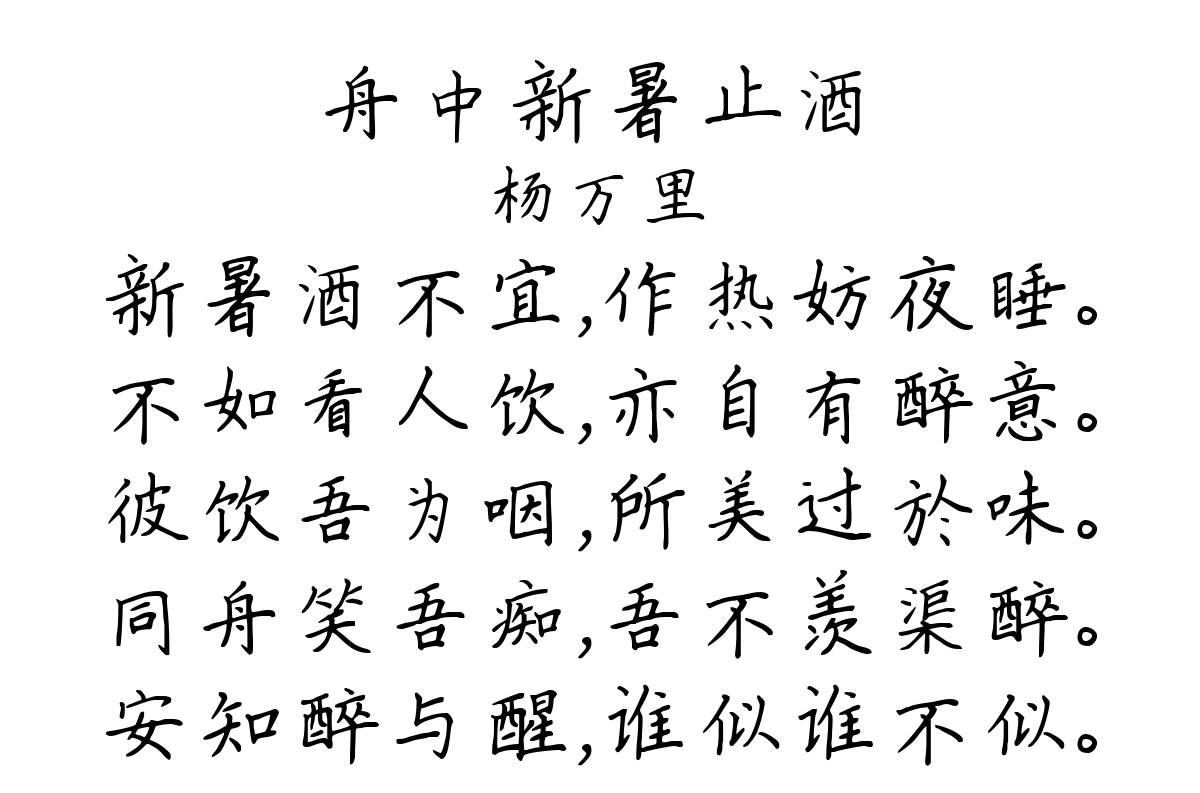 舟中新暑止酒
杨万里
新暑酒不宜,作热妨夜睡。
不如看人饮,亦自有醉意。
彼饮吾为咽,所美过於味。
同舟笑吾痴,吾不羡渠醉。
安知醉与醒,谁似谁不似。